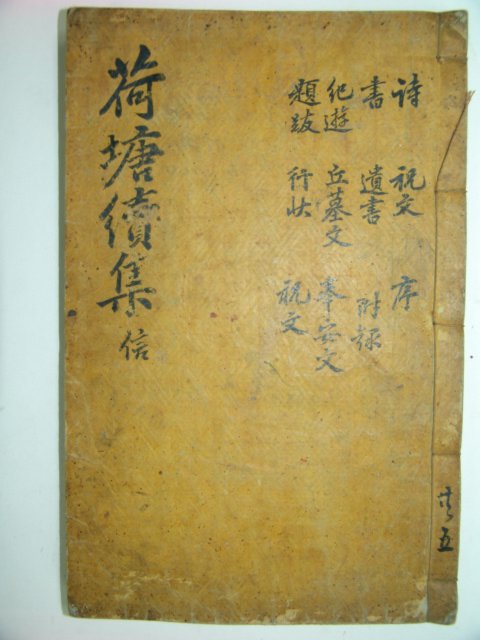 共五
詩 祝文 序
書 遺書 附錄
紀遊 丘墓文 奉安文
題跋 行狀 祝文
荷塘續集 信